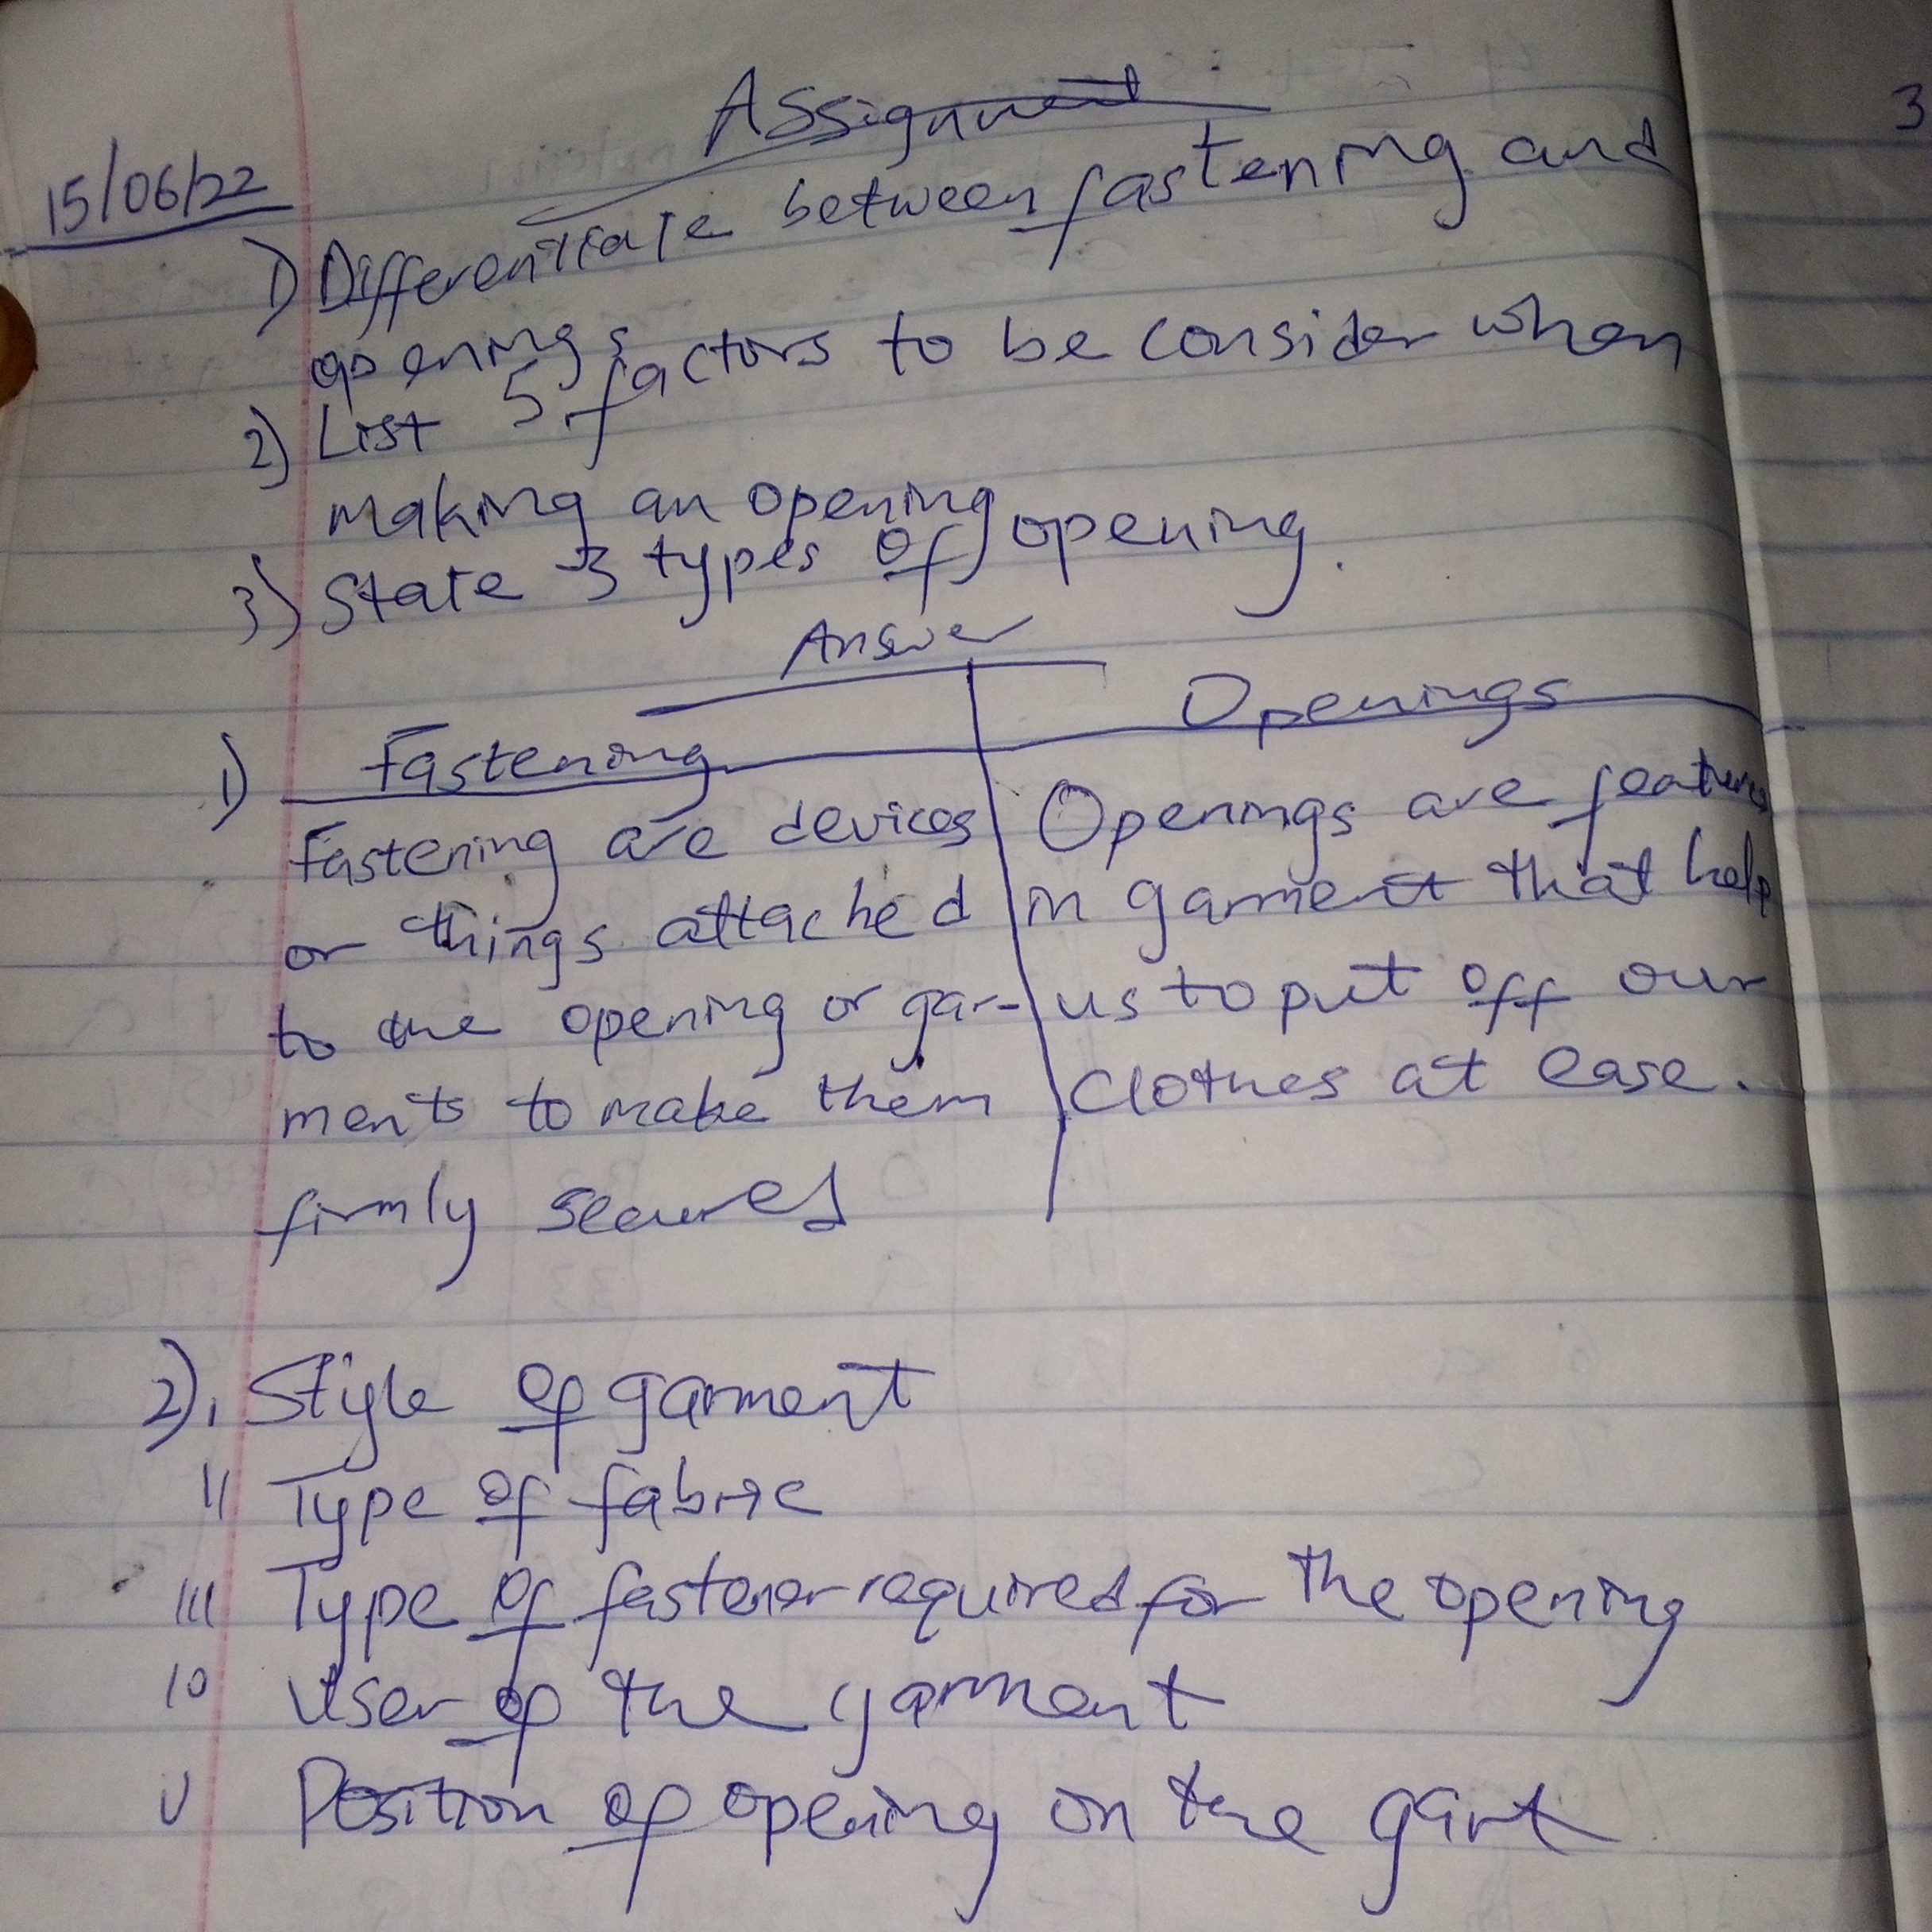 Assignment
3
15/06/22
1) Differentiate between fastening and
openings
2) List 5 factors to be consider when
making an opening
3) State 3 types of opening.
Answer
1) Fastening
Openings
Fastening are devices
or things attached
to the opening or gar-
ments to make them
firmly secured
Openings are features
in garment that help
us to put off our
clothes at ease.
2) i Style of garment
ii Type of fabric
iii Type of fastener required for the opening
iv User of the garment
v Position of opening on the gart